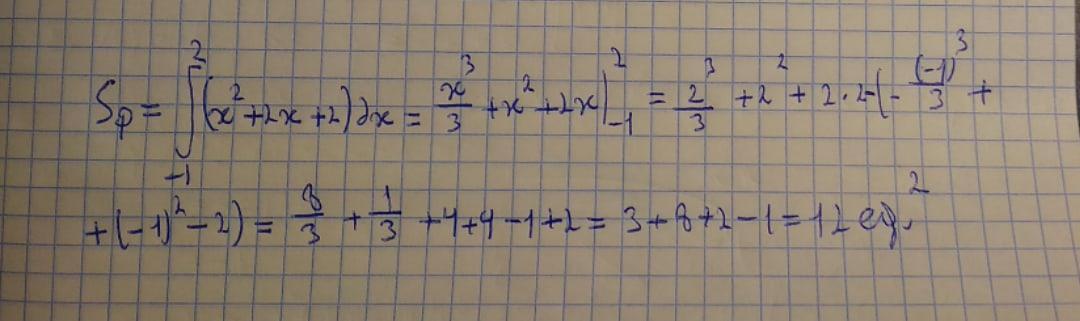 Sφ = ∫₋₁² (x² + 2x + 2) dx = x³/3 + x² + 2x |₋₁² = 2³/3 + 2² + 2·2 - (- (-1)³/3 +
+ (-1)² - 2) = 8/3 + 1/3 + 4 + 4 - 1 + 2 = 3 + 8 + 2 - 1 = 12 eg.²